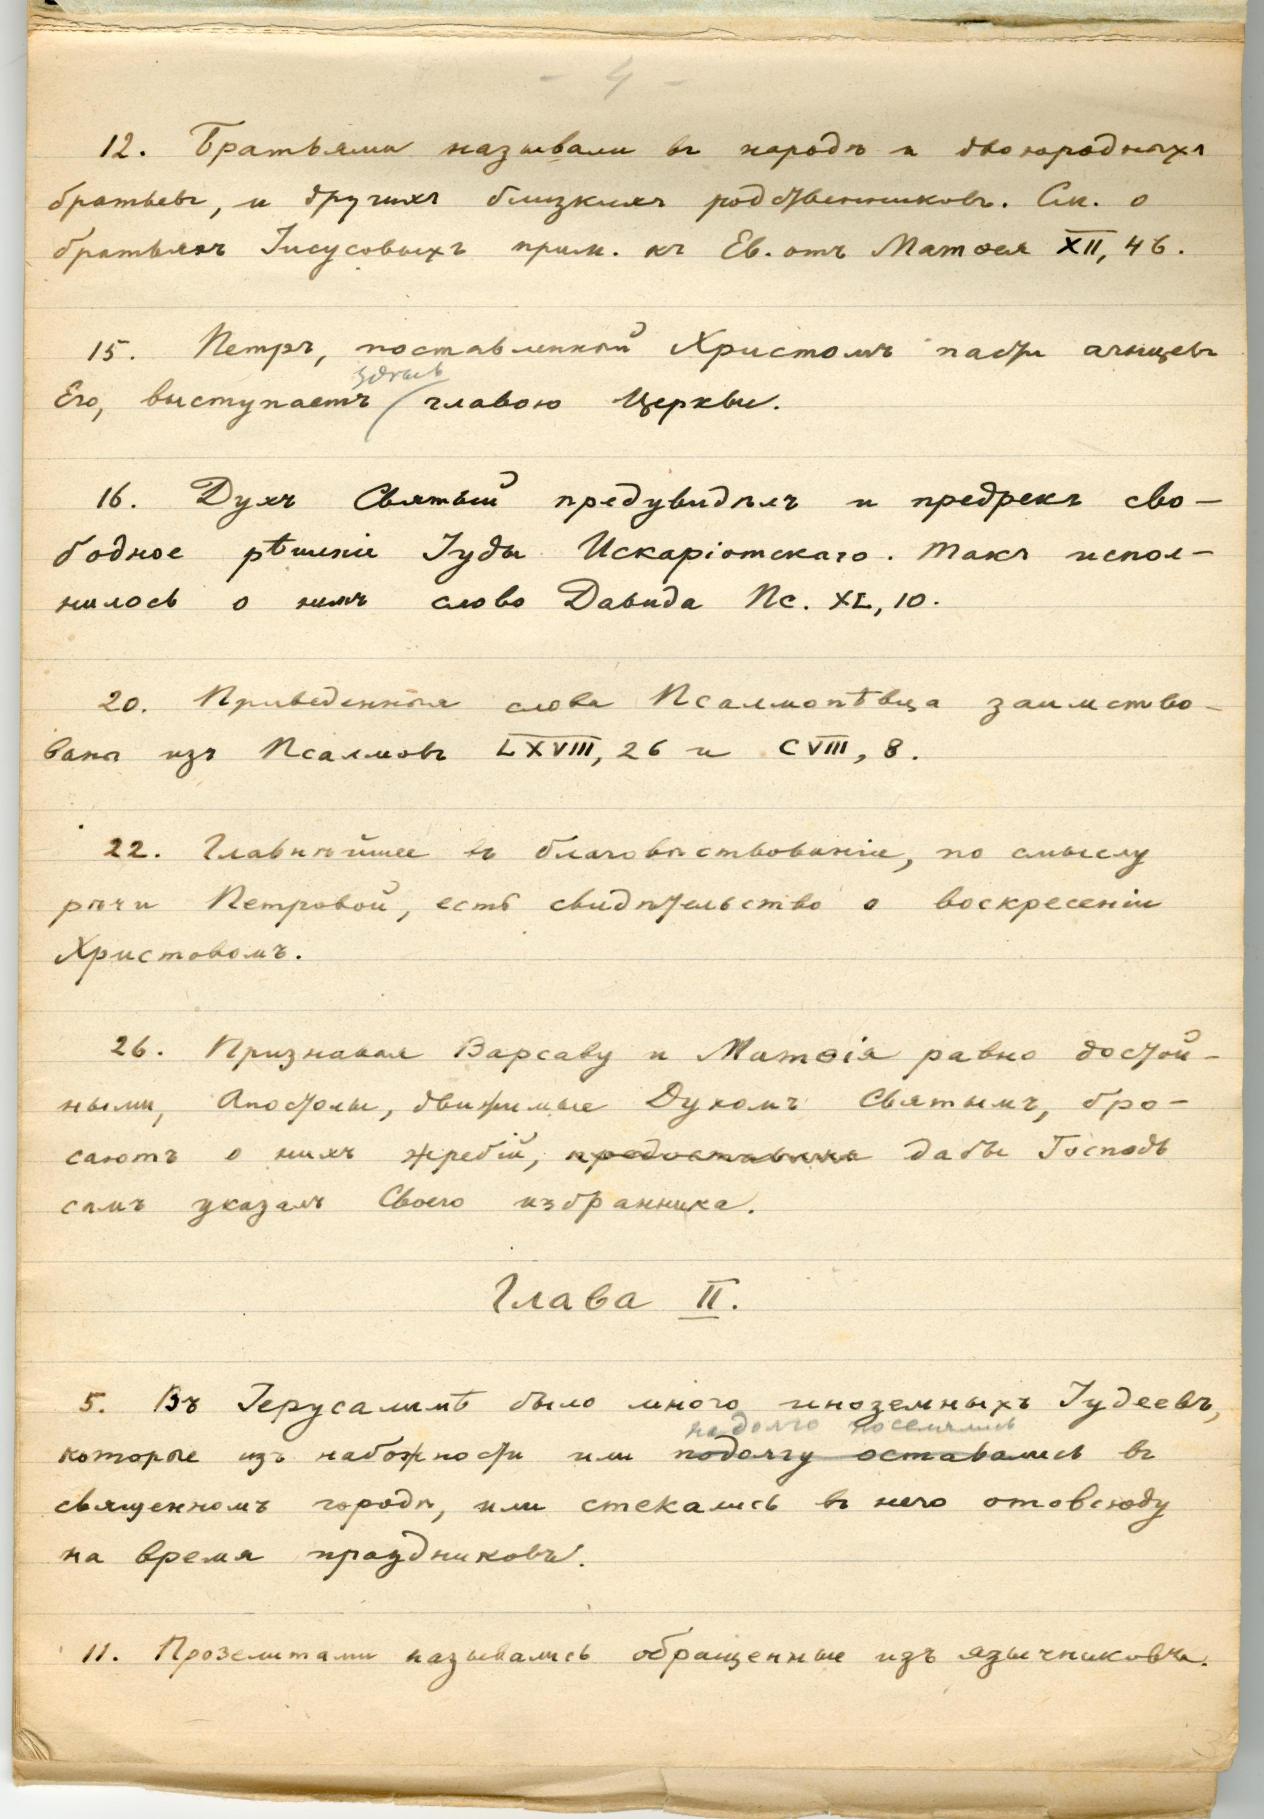 - 4 -
12. Братьями называли въ народѣ и двоюродныхъ
братьевъ, и другихъ близкихъ родственниковъ. См. о
братьяхъ Іисусовыхъ прим. къ Ев. отъ Матѳея XII, 46.
15. Петръ, поставленный Христомъ пасти агнцевъ
здѣсь
Его, выступаетъ главою Церкви.
16. Духъ Святый предувидѣлъ и предрекъ сво-
бодное рѣшеніе Іуды Искаріотскаго. Такъ испол-
нилось о немъ слово Давида Пс. XL, 10.
20. Приведенныя слова Псалмопѣвца заимство-
ваны изъ Псалмовъ LXVIII, 26 и CVIII, 8.
22. Главнѣйшее въ благовѣствованіи, по смыслу
рѣчи Петровой, есть свидѣтельство о воскресеніи
Христовомъ.
26. Признавая Варсаву и Матѳія равно достой-
ными, Апостолы, движимые Духомъ Святымъ, бро-
саютъ о нихъ жребій, предоставляя дабы Господь
самъ указалъ Своего избранника.
Глава II.
5. Въ Іерусалимѣ было много иноземныхъ Іудеевъ,
надолго поселялись
которые изъ набожности или подолгу оставались въ
священномъ городѣ, или стекались въ него отовсюду
на время праздниковъ.
11. Прозелитами назывались обращенные изъ язычниковъ.